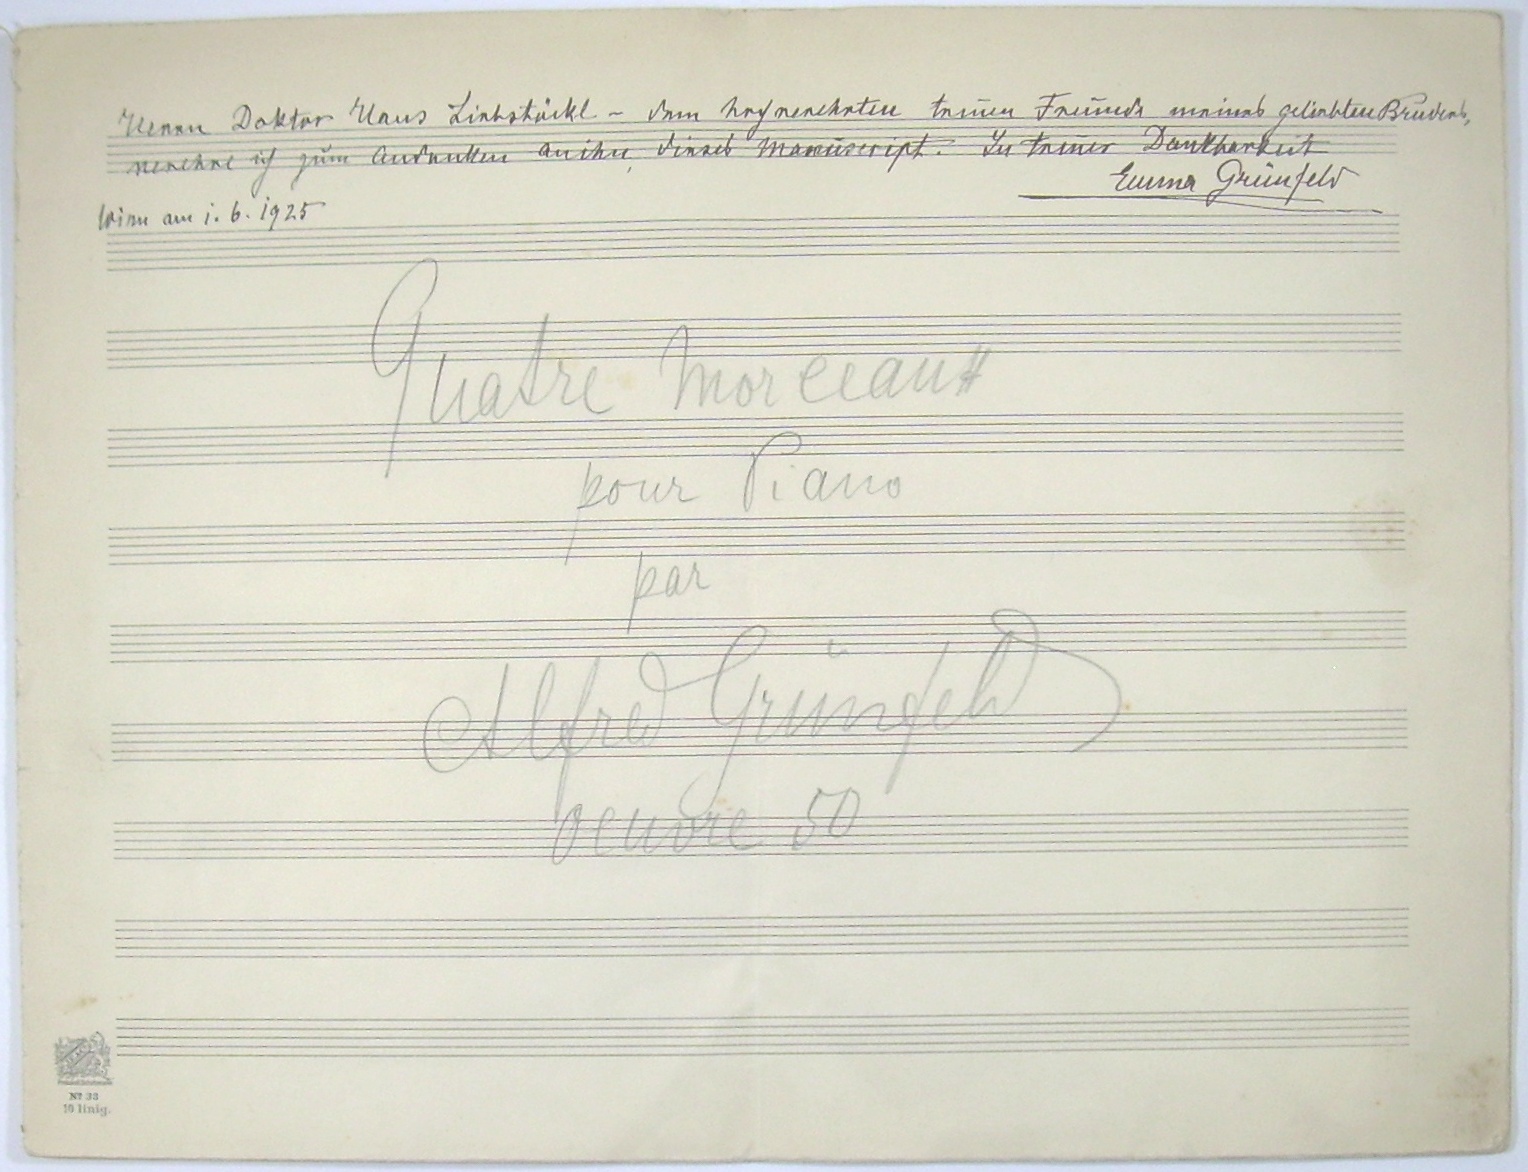 Herrn Doktor Hans Liebstöckl – dem hochverehrten treuen Freunde meines geliebten Bruders,
verehre ich zum Andenken an ihn, dieses Manuscript. In treuer Dankbarkeit
Emma Grünfeld
Wien am 1. 6. 1925
Quatre Morceaux
pour Piano
par
Alfred Grünfeld
oeuvre 50
Nº 33
10 linig.